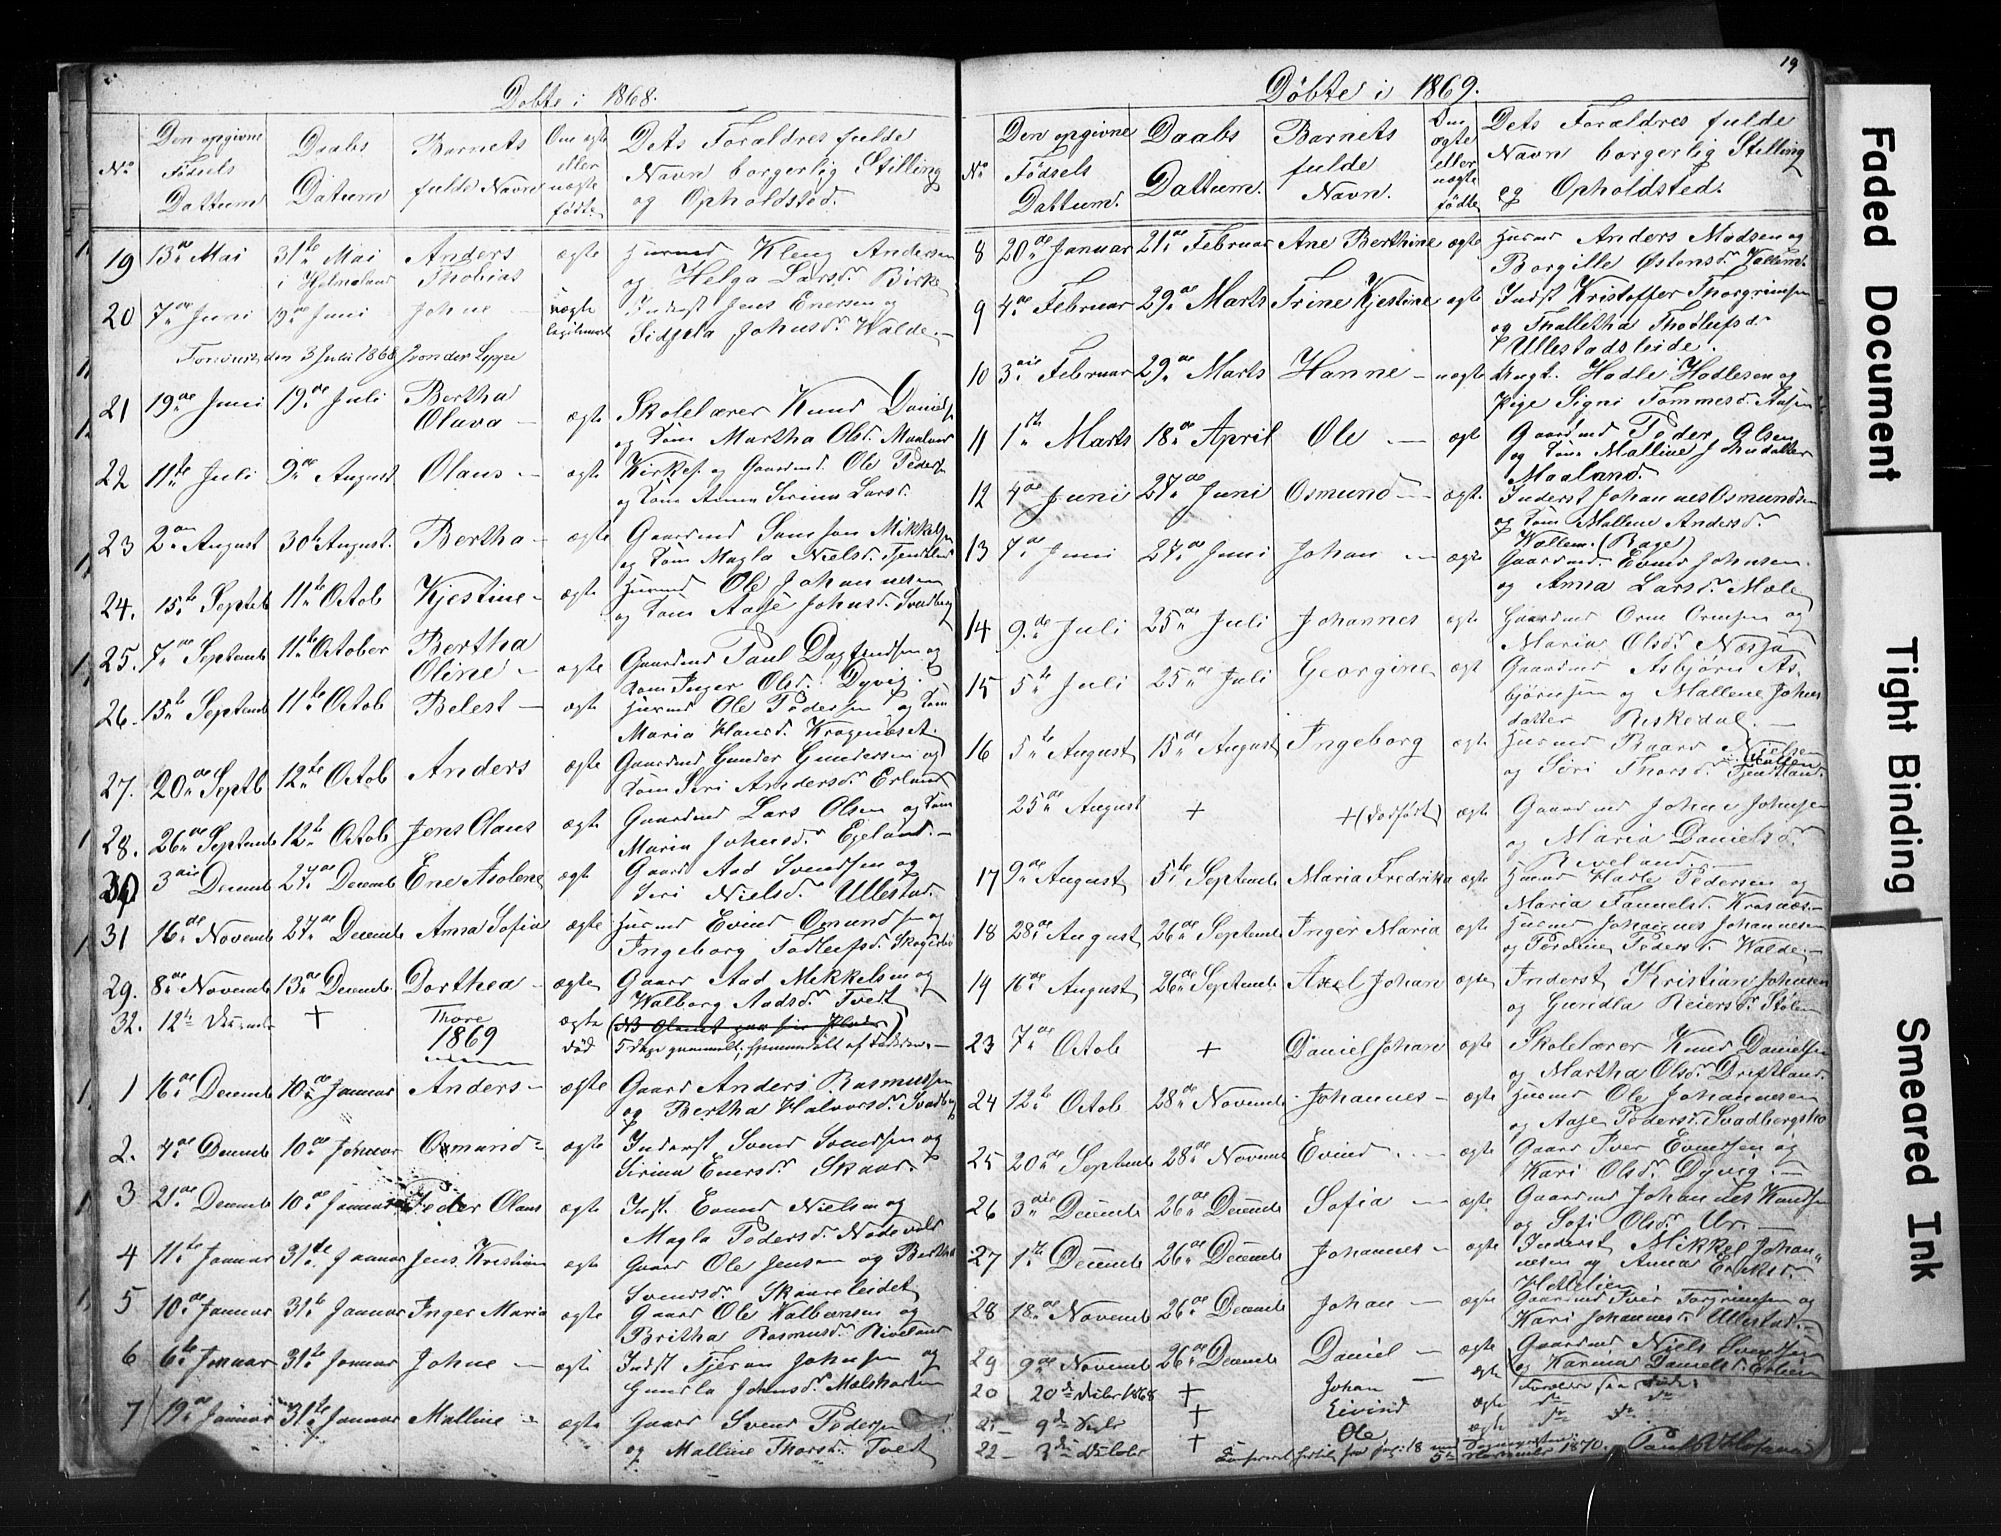 Døbte i 1868.
No
Den opgivne Fødsels Dattum
Daabs Datum
Barnets fulde Navn
Om ægte eller uægte fødte
Dets Forældres fulde Navn borgerlig Stilling og Opholdsted.
19 13de Mai 31te Mai i Helmeland Anders Thobias ægte Husmd Kleng Andersen
og Helga Larsd. Birke
20 7de Juni Juni Johne uægte legitimeret Inderst Jens Enersen og
Sidsela Johnsd. Walde
den 3 Juli 1868
21 19de Juni 19de Juli Bertha Olava ægte Skolelærer Knud Daniels
og Kone Martha Olsd. Maaland
22 11te Juli 9de August Olaus ægte Kirkes. og Gaardmd. Ole Peders
og Kone Anna Serina Larsd.
23 2den August 30te August. Bertha ægte Gaardmd Samson Mikkelsen
og Kone Magla Nielsd. Tjentland
24. 15de Septeb 11te Octob Kjestine ægte Husmd Ole Johannesen
og Kone Aase Johnsd. Svadberg
25. 7de Septemb 11te October Bertha Oline ægte Gaardmd Paul Dagfindsen og
Kone Inger Olsd. Dyvig.
26. 15de Septemb 11te Octob Belest ægte Husmd Ole Pedersen og Kone
Maria Hansd. Krogenæset.
27. 20de Septb 12te Octob Anders ægte Gaardmd Gunder Gundersen og
Kone Seri Andersd. Erland
28. 26de Septemb 12te Octob Jens Olaus ægte Gaardmd Lars Olsen og Kone
Maria Johnsd. Egeland.
30 3die Decemb 27de Decemb Ene Asolene ægt Gaard Aad Svendsen og
Seri Nielsd. Ullestad.
31 16de Novemb 27de Decemb Anna Sofia ægte Husmd Evind Omunds og
Ingeborg Tollefsd.
29. 8de Novemb 13de Decemb Dorthea ægte Gaard Aad Mekkelsen og
Walborg Aadsd. Tveit
32. 12te Decemb + Thore ægte død
5 dage gammelt, hjemmedøbt af Faderen.
1869
1 16de Decemb 10de Januar Anders ægte Gaard Anders Rasmussen
og Bertha Halvorsd. Svadberg
2. 4de Decemb 10de Januar Osmund ægte Inderst Svend Svendsen og
Serina Enersd. Skaar.
3 21de Decemb 10de Januar Peder Olaus ægte Indst. Evind Nielsen og
Magla Pedersd. Nodevold
4 11te Januar 31de Januar Jens Kristian ægte Gaard Ole Jensen og Bertha
Svendsd. Skaareleidet
5 10de Januar 31te Januar Inger Maria ægte Gaard Ole Walbernsen og
Britha Rasmusd. Riveland
6 6te Januar 31te Januar Johne ægte Indst Tjeran Johnsen og
Gundla Johnsd.
7 19de Januar 31te Januar Malline ægte Gaard Svend Peders
og Malline Thorsd. Tveit
19
Døbte i 1869.
No
Den opgivne Fødsels Dattum.
Daabs Dattum.
Barnets fulde Navn.
Om ægte eller uægte fødte
Dets Forældres fulde Navn borgerlig Stilling og Opholdsted.
8 20de Januar 21de Februar Ane Berthine ægte Husmd Anders Madsen og
Borgille Østensd.
9 4de Februar 29de Marts Trine Kjestine ægte Indst Kristoffer Thorgrimsen
og Thalletha Thodlufsd.
Ullestadsleide.
10 3die Februar 29de Marts Hanne uægte Ungk. Hodle Hodlesen og
Pige Signi Tommesd.
11 1te Marts 18de April Ole ægt Gaardmd Peder Olsen
og Kone Malline Johnsdatter
Maaland.
12 4de Juni 27de Juni Osmund ægte Inderst Johannes Osmundsen
og Kone Mallene Andersd.
Wallem (Bage)
13 7de Juni 27de Juni Johan ægte Gaardmd. Evind Johnsen.
og Anna Larsd. Mæle
14 9de Juli 25de Juli Johannes ægte Gaardmd Orm Ormsen og
Maria Olsd. Næsja
15 5te Juli 25de Juli Georgine ægt Gaardmd Asbjørn As-
bjørnsen og Mallene Johns
datter Riskedal.
16 5te August 15de August Ingeborg ægte Husmd Baard Nielsen
og Seri Thorsd. Tjentland.
25de August + + (dødfødt) ægte Gaardmd Johne Johnsen
og Maria Danielsd.
Riveland.
17 9de August 5te Septemb Maria Fredrika ægte Husmd Hadle Pedersen og
Maria Samuelsd. Krosnæs.
18 28de August 26de Septemb Inger Maria ægte Husmd Johannes Johannesen
og Peroline Pedersd. Walde
19 16de August 26de Septemb Axel Johan ægte Inderst Kristian Johnsen
og Gundla Reiersd. Stølen
23 7de Octob + Daniel Johan ægte Skolelærer Knud Danielsen
og Martha Olsd. Driftland.
24 12te Octob 28de Novemb Johannes ægte Husmd Ole Johannesen
og Aase Pedersd. Svadbergsko
25 20de Septemb 28de Novemb Evind ægte Gaard Iver Evindsen og
Kari Olsd. Dyvig.
26 3die Decemb 26de Decemb Sofia ægte Gaardmd Johannes Knudsen
og Sofi Olsd. Ur.
27 1te Decemb 26de Decemb Johannes ægte Inderst Mikkel Johan
nesen og Anna Eriksd.
Hettelien
28 18de Novemb 26de Decemb Johan ægte Gaardmd Iver Torgrimsen og
Kari Johannesd. Ullestad.
29 9de Novemb 26de Decemb Daniel ægte Gaardmd Niels Svendsen
og Karina Danielsd. Erlien
20 20de Decbr 1868 + Johan ægte
21 9de + Eivind ægte do do
22 3die Octobr + Ole ægte do do
5te November 1870.
Faded Document
Tight Binding
Smeared Ink